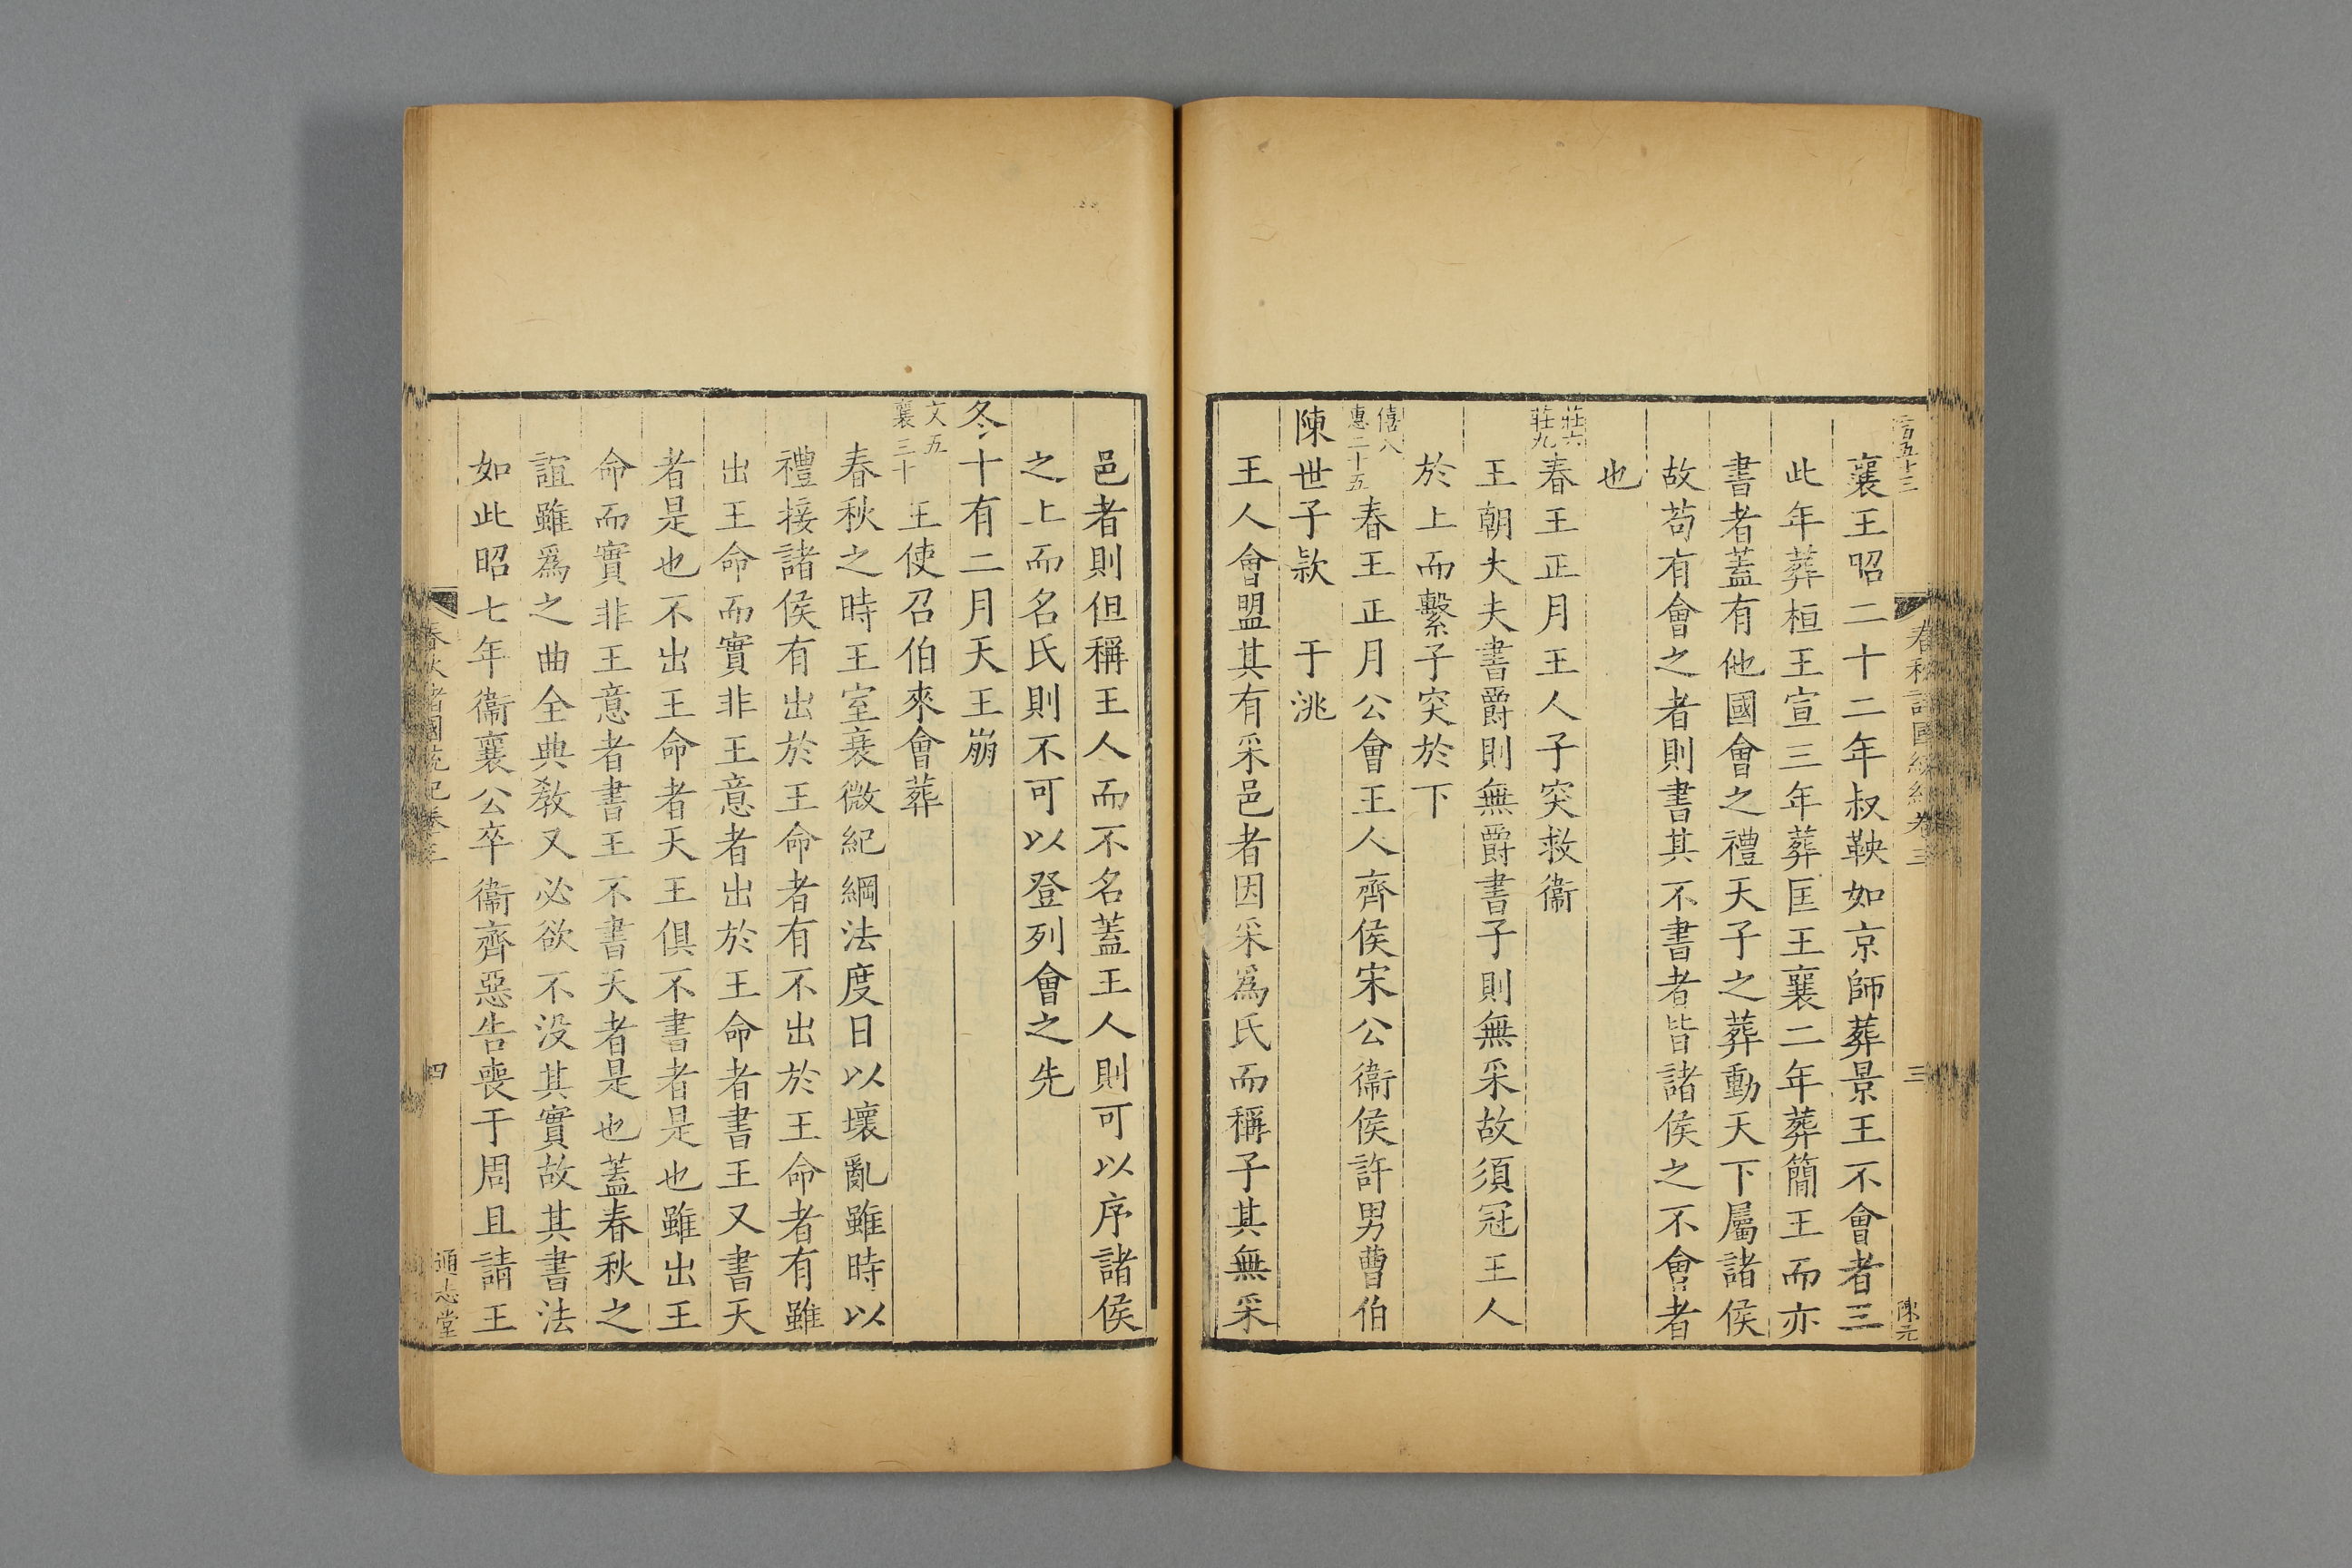 春秋諸國統紀卷三 三 陳元
襄王昭二十二年叔鞅如京師葬景王不會者三
此年葬桓王宣三年葬匡王襄二年葬簡王而亦
書者蓋有他國會之禮天子之葬動天下屬諸侯
故苟有會之者則書其不書者皆諸侯之不會者
也
莊六
莊九
春王正月王人子突救衞
王朝大夫書爵則無爵書子則無采故須冠王人
於上而繫子突於下
僖八
惠二十五
春王正月公會王人齊侯宋公衞侯許男曹伯
陳世子款 于洮
王人會盟其有采邑者因采爲氏而稱子其無采
邑者則但稱王人而不名蓋王人則可以序諸侯
之上而名氏則不可以登列會之先
冬十有二月天王崩
文五
襄三十
王使召伯來會葬
春秋之時王室衰微紀綱法度日以壞亂雖時以
禮接諸侯有出於王命者有不出於王命者有雖
出王命而實非王意者出於王命者書王又書天
者是也不出王命者天王俱不書者是也雖出王
命而實非王意者書王不書天者是也蓋春秋之
誼雖爲之曲全典教又必欲不没其實故其書法
如此昭七年衞襄公卒衞齊惡告喪于周且請王
春秋諸國統紀卷三 四 通志堂